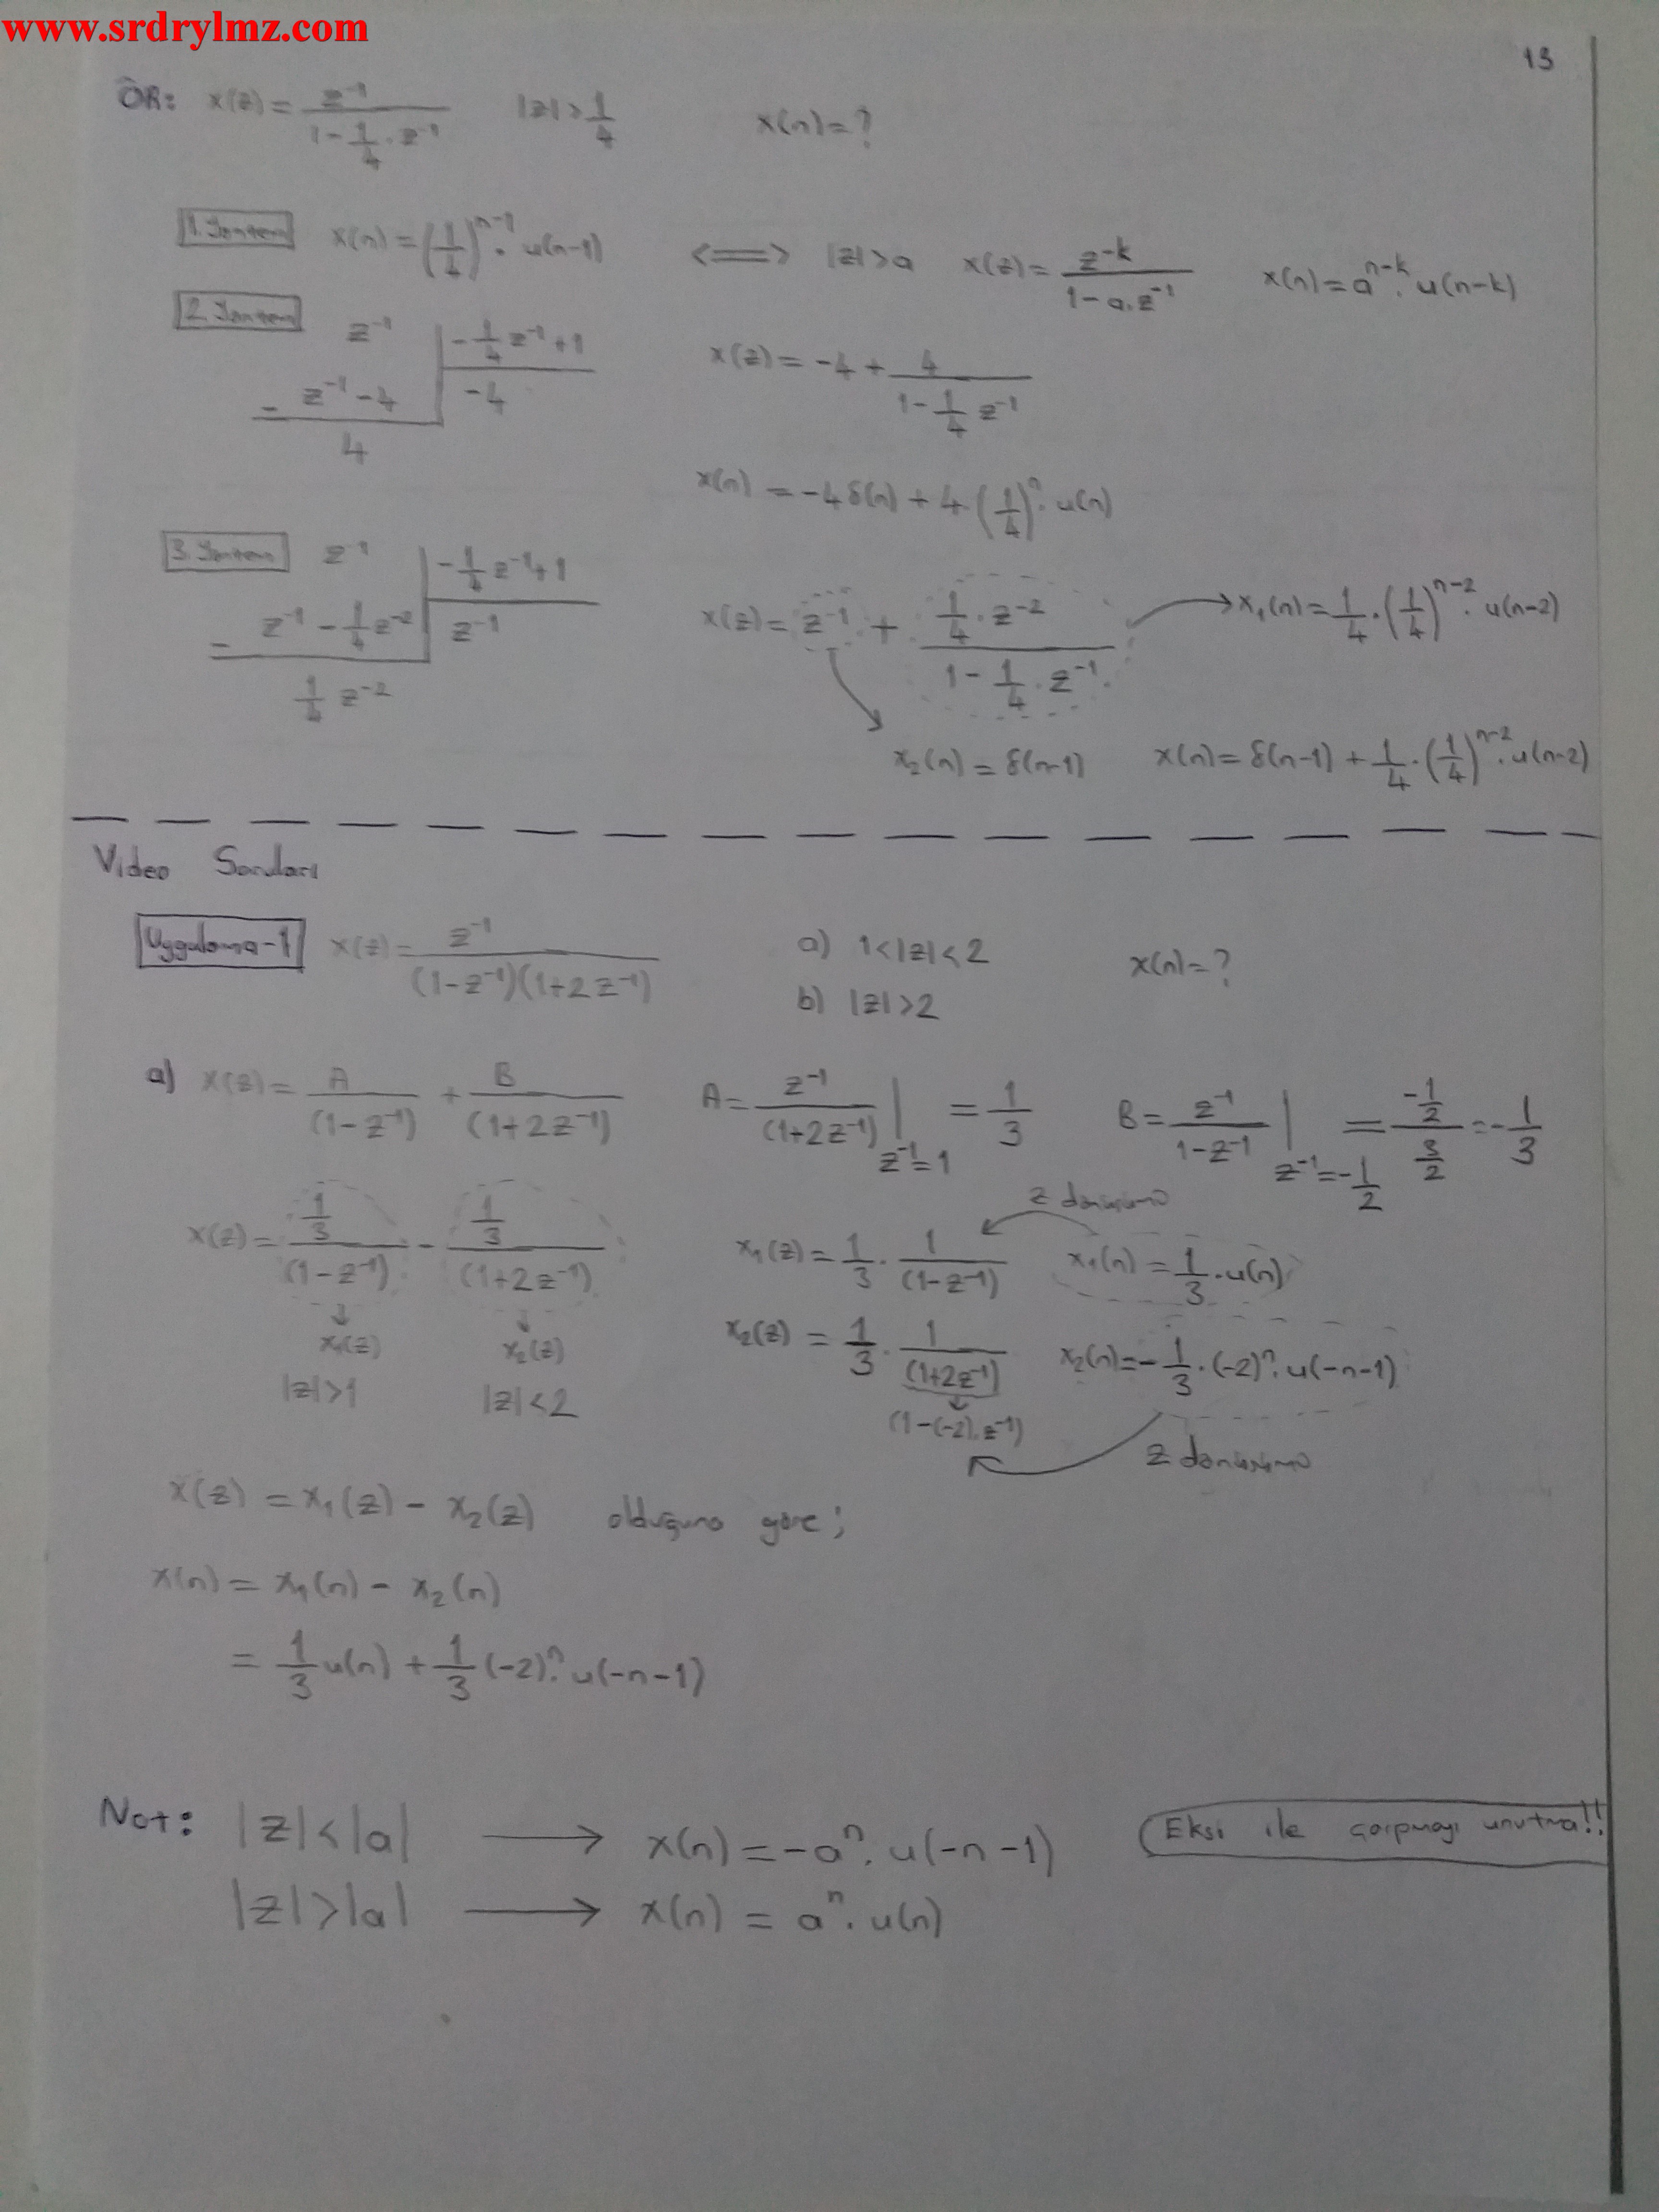 www.srdrylmz.com
13
ÖR: x(z) = z^-1 / (1 - 1/4 . z^-1) |z| > 1/4 x(n) = ?
1. Yöntem x(n) = (1/4)^n-1 . u(n-1) <=> |z| > a x(z) = z^-k / (1 - a.z^-1) x(n) = a^n-k . u(n-k)
2. Yöntem z^-1 | -1/4 z^-1 + 1
- z^-1 - 4 | -4
4
x(z) = -4 + 4 / (1 - 1/4 z^-1)
x(n) = -4 δ(n) + 4 . (1/4)^n . u(n)
3. Yöntem z^-1 | -1/4 z^-1 + 1
- z^-1 - 1/4 z^-2 | z^-1
1/4 z^-2
x(z) = z^-1 + (1/4 . z^-2) / (1 - 1/4 . z^-1) → x₁(n) = 1/4 . (1/4)^n-2 . u(n-2)
x₂(n) = δ(n-1) x(n) = δ(n-1) + 1/4 . (1/4)^n-2 . u(n-2)
Video Soruları
Uygulama-1 x(z) = z^-1 / (1-z^-1)(1+2z^-1) a) 1 < |z| < 2 x(n) = ?
b) |z| > 2
a) x(z) = A / (1-z^-1) + B / (1+2z^-1) A = z^-1 / (1+2z^-1) | z^-1 = 1 = 1/3 B = z^-1 / (1-z^-1) | z^-1 = -1/2 = (-1/2) / (3/2) = -1/3
z dönüşümü
x(z) = (1/3) / (1-z^-1) - (1/3) / (1+2z^-1) x₁(z) = 1/3 . 1 / (1-z^-1) x₁(n) = 1/3 . u(n)
↓ x₁(z) ↓ x₂(z) x₂(z) = 1/3 . 1 / (1+2z^-1) x₂(n) = -1/3 . (-2)^n . u(-n-1)
|z| > 1 |z| < 2 (1-(-2).z^-1)
z dönüşümü
x(z) = x₁(z) - x₂(z) olduğuna göre;
x(n) = x₁(n) - x₂(n)
= 1/3 u(n) + 1/3 (-2)^n . u(-n-1)
Not: |z| < |a| → x(n) = -a^n . u(-n-1) Eksi ile çarpmayı unutma!!
|z| > |a| → x(n) = a^n . u(n)